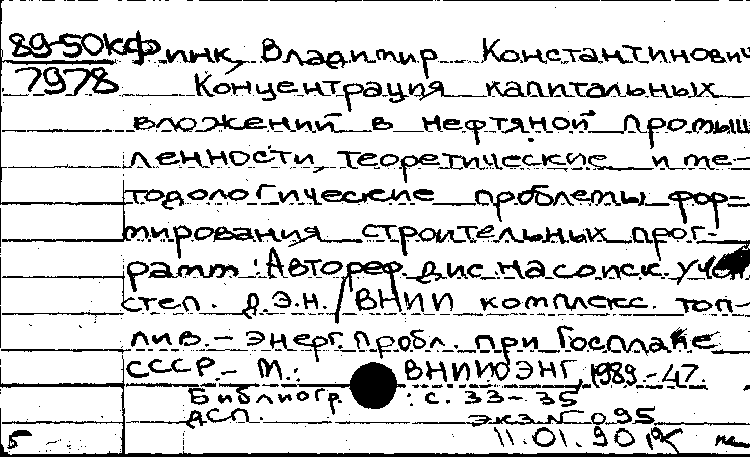 89-50кф
7978
Финк, Владимир Константинович
Концентрация капитальных
вложений в нефтяной промыш
ленности, теоретические и ме-
тодологические проблемы фор-
мирования строительных прог-
рамм: Автореф. дис. на соиск. учен
степ. д.э.н. / ВНИИ комплекс. топ-
лив.-энерг. пробл. при Госплане
СССР.- М.: ВНИИОЭНГ, 1989.-47.
Библиогр.: с. 33-35
ДСП. экз.N 095
11.01.90
Б